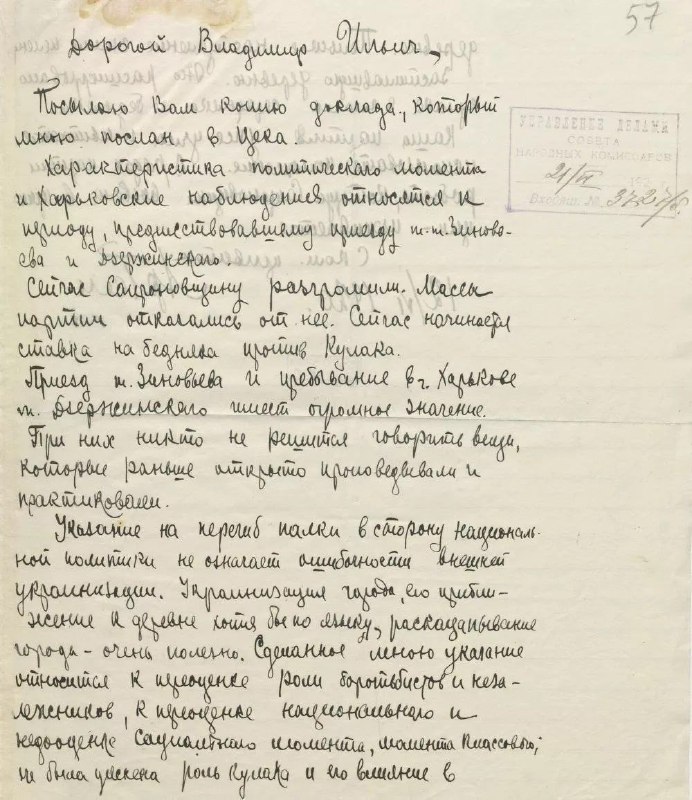 57
Дорогой Владимир Ильич,
Посылаю Вам копию доклада, который
мною послан в Цека.
Характеристика политического момента
и Харьковские наблюдения относятся к
периоду, предшествовавшему приезду т.т. Зиновь-
ева и Дзержинского.
Сейчас Сапроновщину разгромили. Массы
партии отказались от нее. Сейчас начинается
ставка на бедняка против Кулака.
Приезд т. Зиновьева и пребывание в г. Харькове
т. Дзержинского имеет огромное значение.
При них никто не решится говорить вещи,
которые раньше открыто проповедывали и
практиковали.
Указание на перегиб палки в сторону националь-
ной политики не означает ошибочности внешней
украинизации. Украинизация города, его прибли-
жение к деревне хотя бы по языку, раскацапывание
города – очень полезно. Сделанное мною указание
относится к переоценке роли боротьбистов и неза-
лежников, к переоценке национального и
недооценке социального момента, момента классового;
не была учтена роль Кулака и его влияние в
УПРАВЛЕНИЕ ДЕЛАМИ
СОВЕТА
НАРОДНЫХ КОМИССАРОВ
21/VI
Входящ. №